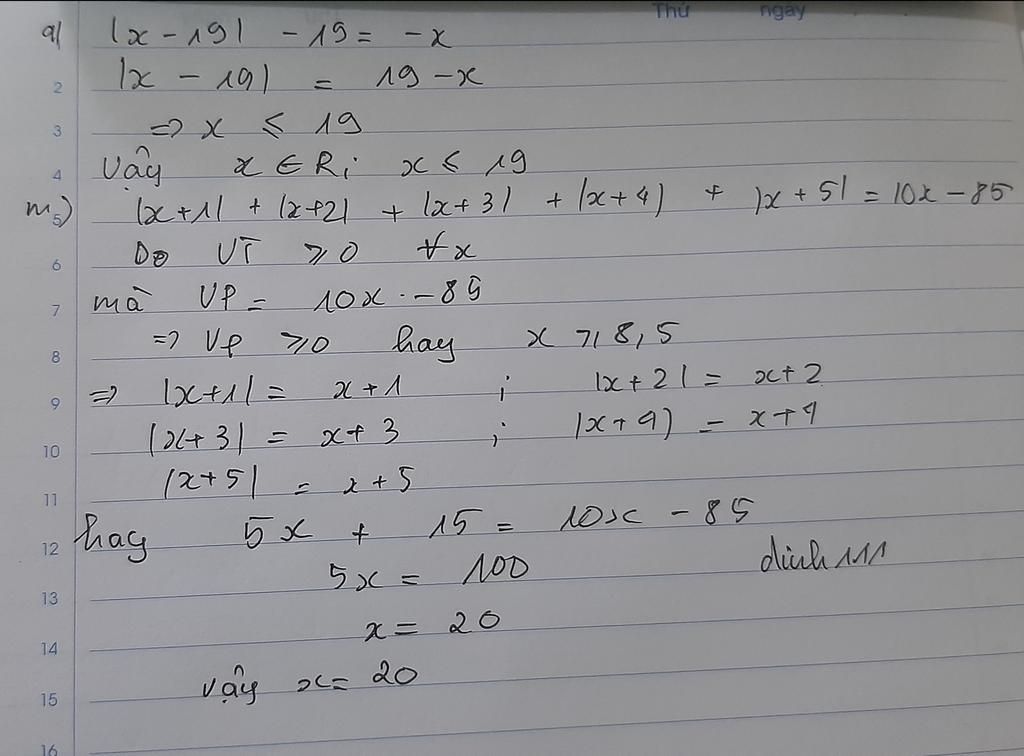 Thứ ngày
a) |x - 19| - 19 = -x
2 |x - 19| = 19 - x
3 => x ≤ 19
4 Vậy x ∈ R; x ≤ 19
m) 5 |x+1| + |x+2| + |x+3| + |x+4| + |x+5| = 10x - 85
6 Do VT ≥ 0 ∀x
7 mà VP = 10x - 85
8 => VP ≥ 0 hay x ≥ 8,5
9 => |x+1| = x+1 ; |x+2| = x+2
10 |x+3| = x+3 ; |x+4| = x+4
11 |x+5| = x+5
12 hay 5x + 15 = 10x - 85
13 5x = 100 dinh111
14 x = 20
15 vậy x = 20
16